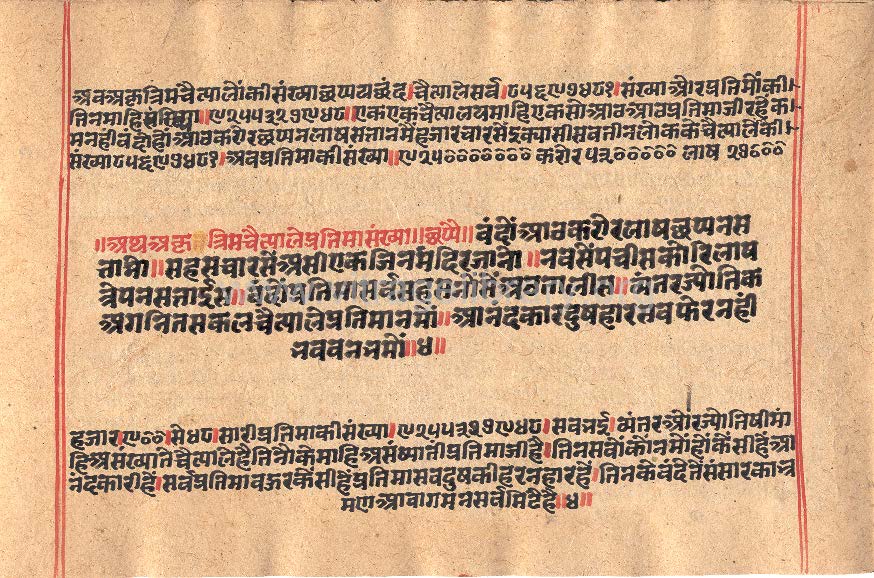 अवअकृत्रिमचैत्यालोंकीसंख्याछप्पयछंद।चैत्यालेसर्व।८५६९७४८१।संख्याओरप्रतिमोंकी।
तिनमाहिसंख्या॥९२५५३२७९४८॥एकएकचैत्यालयमाहिएकसोआठआठप्रतिमाजीरहैंक।
मनहीवंदोहों।आठकरोरछप्पनलाषसतानमेंहजारचारसेंइक्यासीसबतीनलोककेचैत्यालेंकी।
संख्या८५६९७४८१।अवप्रतिमाकीसंख्या॥९२५०००००००करोर५३०००००लाष२७०००
॥अथअकृत्रिमचैत्यालेप्रतिमासंख्या॥छप्पै॥वंदोंआठकरोरलाषछप्पनस
तानो॥सहसचारसेंअसीएकजिनमंदिरजानो॥नवसेंपचीसकोरिलाष
त्रेपनसताईस॥सारीप्रतिमासर्वसहसनोंसेंअठतालीस॥वंतरज्योतिक
अगनितसकलचैत्यालेप्रतिमानमों॥आनंदकारदुषहारसवफेरनहीं
भववनभमों॥४॥
हजार।९००।सेंऔर४८।सारीप्रतिमाकीसंख्या।९२५५३२७९४८।सवभई।वंतरओरज्योतिषीमां
हिअसंख्यातेचैत्यालेहैतिनोंकेमाहिअसंख्यातीप्रतिमाजीहै।तिनसवोंकोंनमोंहोंकैसीहैंआ
नंदकारीहैं।सर्वप्रतिमावहुरकैंसीहैंप्रतिमासवदुषकीहरनहारहैं।तिनकेवंदेतेंसंसारकाभ्र
मणआवागमनसर्वमिटैहै॥४॥